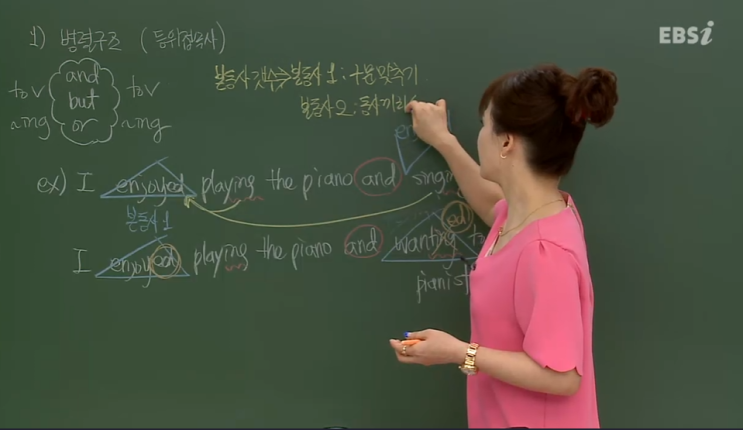 EBSi
1) 병렬구조 (등위접속사)
and
to v but to v
~ing or ~ing
본동사 갯수 ⇒ 본동사 1 : 구문맞추기
본동사 2 : 동사끼리
ex) I enjoyed playing the piano and singin
본동사 1
ed
I enjoyed playing the piano and wanting to
pianist